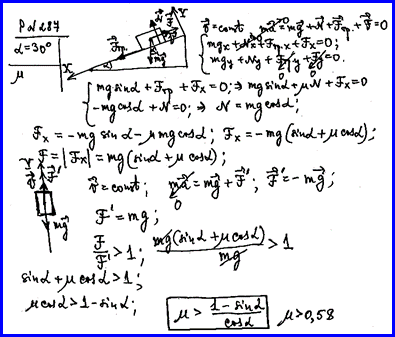 P N 287
α=30°
μ
v⃗=const; ma⃗=mg⃗+N⃗+F⃗тр.+F⃗=0
{ mgx+Nx+Fтр.x+Fx=0;
mgy+Ny+Fтрy+Fy=0.
0 0
N⃗ F⃗ Y
v⃗
F⃗тр.
mg⃗
X α
{ mg sinα+Fтр+Fx=0; ⇒ mg sinα+μN+Fx=0
-mg cosα+N=0; ⇒ N=mg cosα;
Fx=-mg sinα-μmg cosα; Fx=-mg(sinα+μcosα);
F=|Fx|=mg(sinα+μcosα);
Y
v⃗ F⃗'
mg⃗
v⃗=const; ma⃗=mg⃗+F⃗'; F⃗'=-mg⃗;
0
F'=mg;
F/F'>1; mg(sinα+μcosα)/mg>1
sinα+μcosα>1;
μcosα>1-sinα;
μ>(1-sinα)/cosα μ>0,58